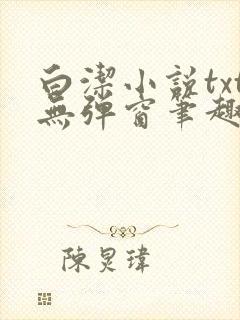 白潔小説txt
無弹窗筆趣
陳炅瑋